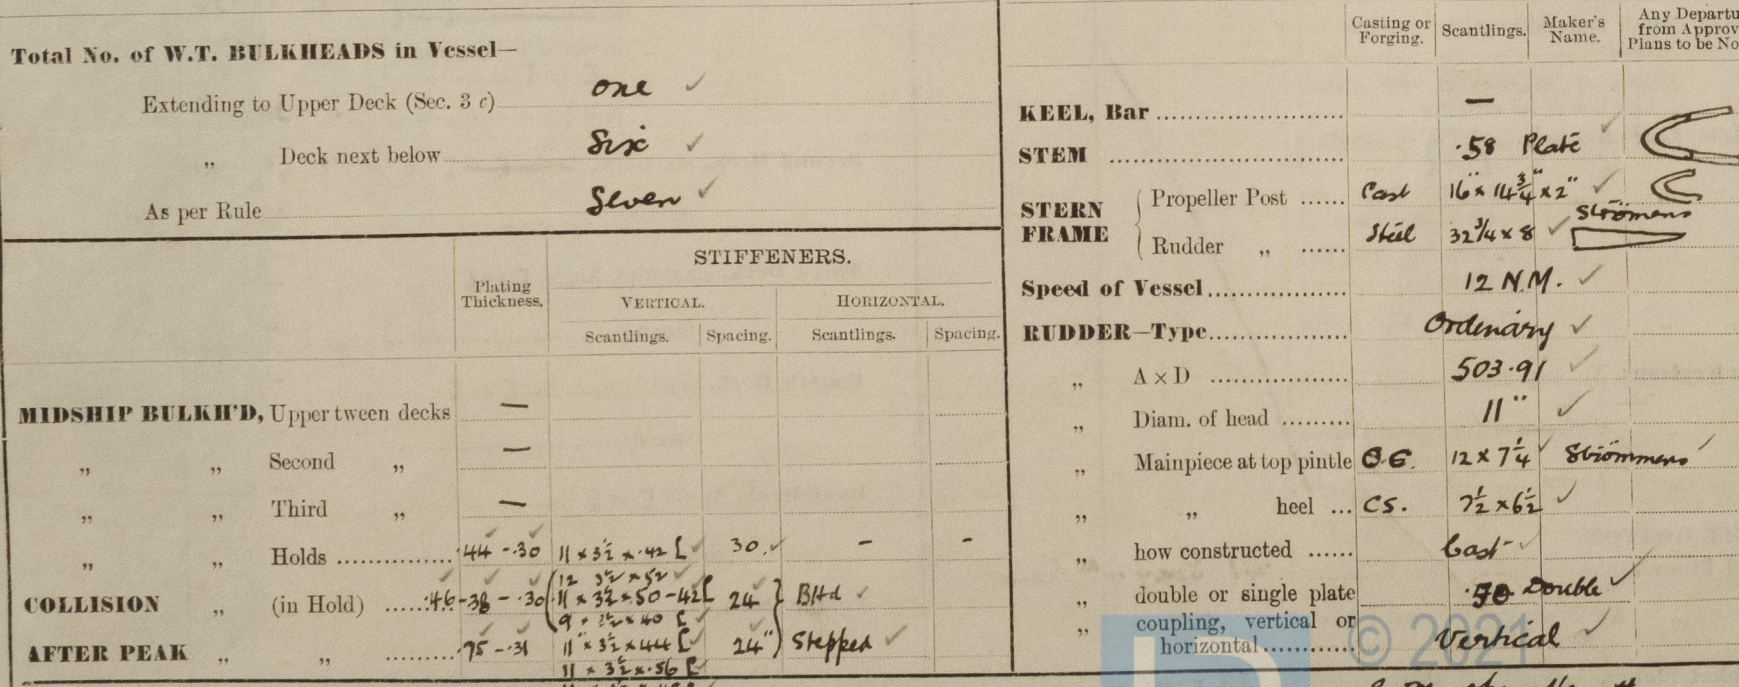 Total No. of W.T. BULKHEADS in Vessel—
Extending to Upper Deck (Sec. 3 c) one ✓
„ Deck next below Six ✓
As per Rule Seven ✓
Plating Thickness.
STIFFENERS.
VERTICAL. HORIZONTAL.
Scantlings. Spacing. Scantlings. Spacing.
MIDSHIP BULKH'D, Upper tween decks —
„ „ Second „ —
„ „ Third „ —
„ „ Holds ·44 - ·30 11 × 3½ × ·42 [ 30 - -
12 3½ × 52
COLLISION „ (in Hold) ·46 - 38 - ·30 11 × 3½ × 50 - 42 [ 24 BHd ✓
AFTER PEAK „ „ 11" × 3½ × 44 [ 24" Stepped ✓
11 × 3½ × ·56 [
Casting or Forging. Scantlings. Maker's Name. Any Departu
from Approv
Plans to be No
KEEL, Bar —
STEM ·58 Plate
STERN FRAME
Propeller Post Cast 16" × 14¾" × 2" ✓
Strömens
Rudder „ Steel 32¾ × 8 ✓
Speed of Vessel 12 N.M. ✓
RUDDER—Type Ordinary ✓
„ A × D 503·91 ✓
„ Diam. of head 11" ✓
„ Mainpiece at top pintle 12 × 7¼ ✓ Strömmens
„ „ heel CS. 7½ × 6½ ✓
„ how constructed Cast ✓
„ double or single plate Double ✓
„ coupling, vertical or
horizontal Vertical ✓
© 2021